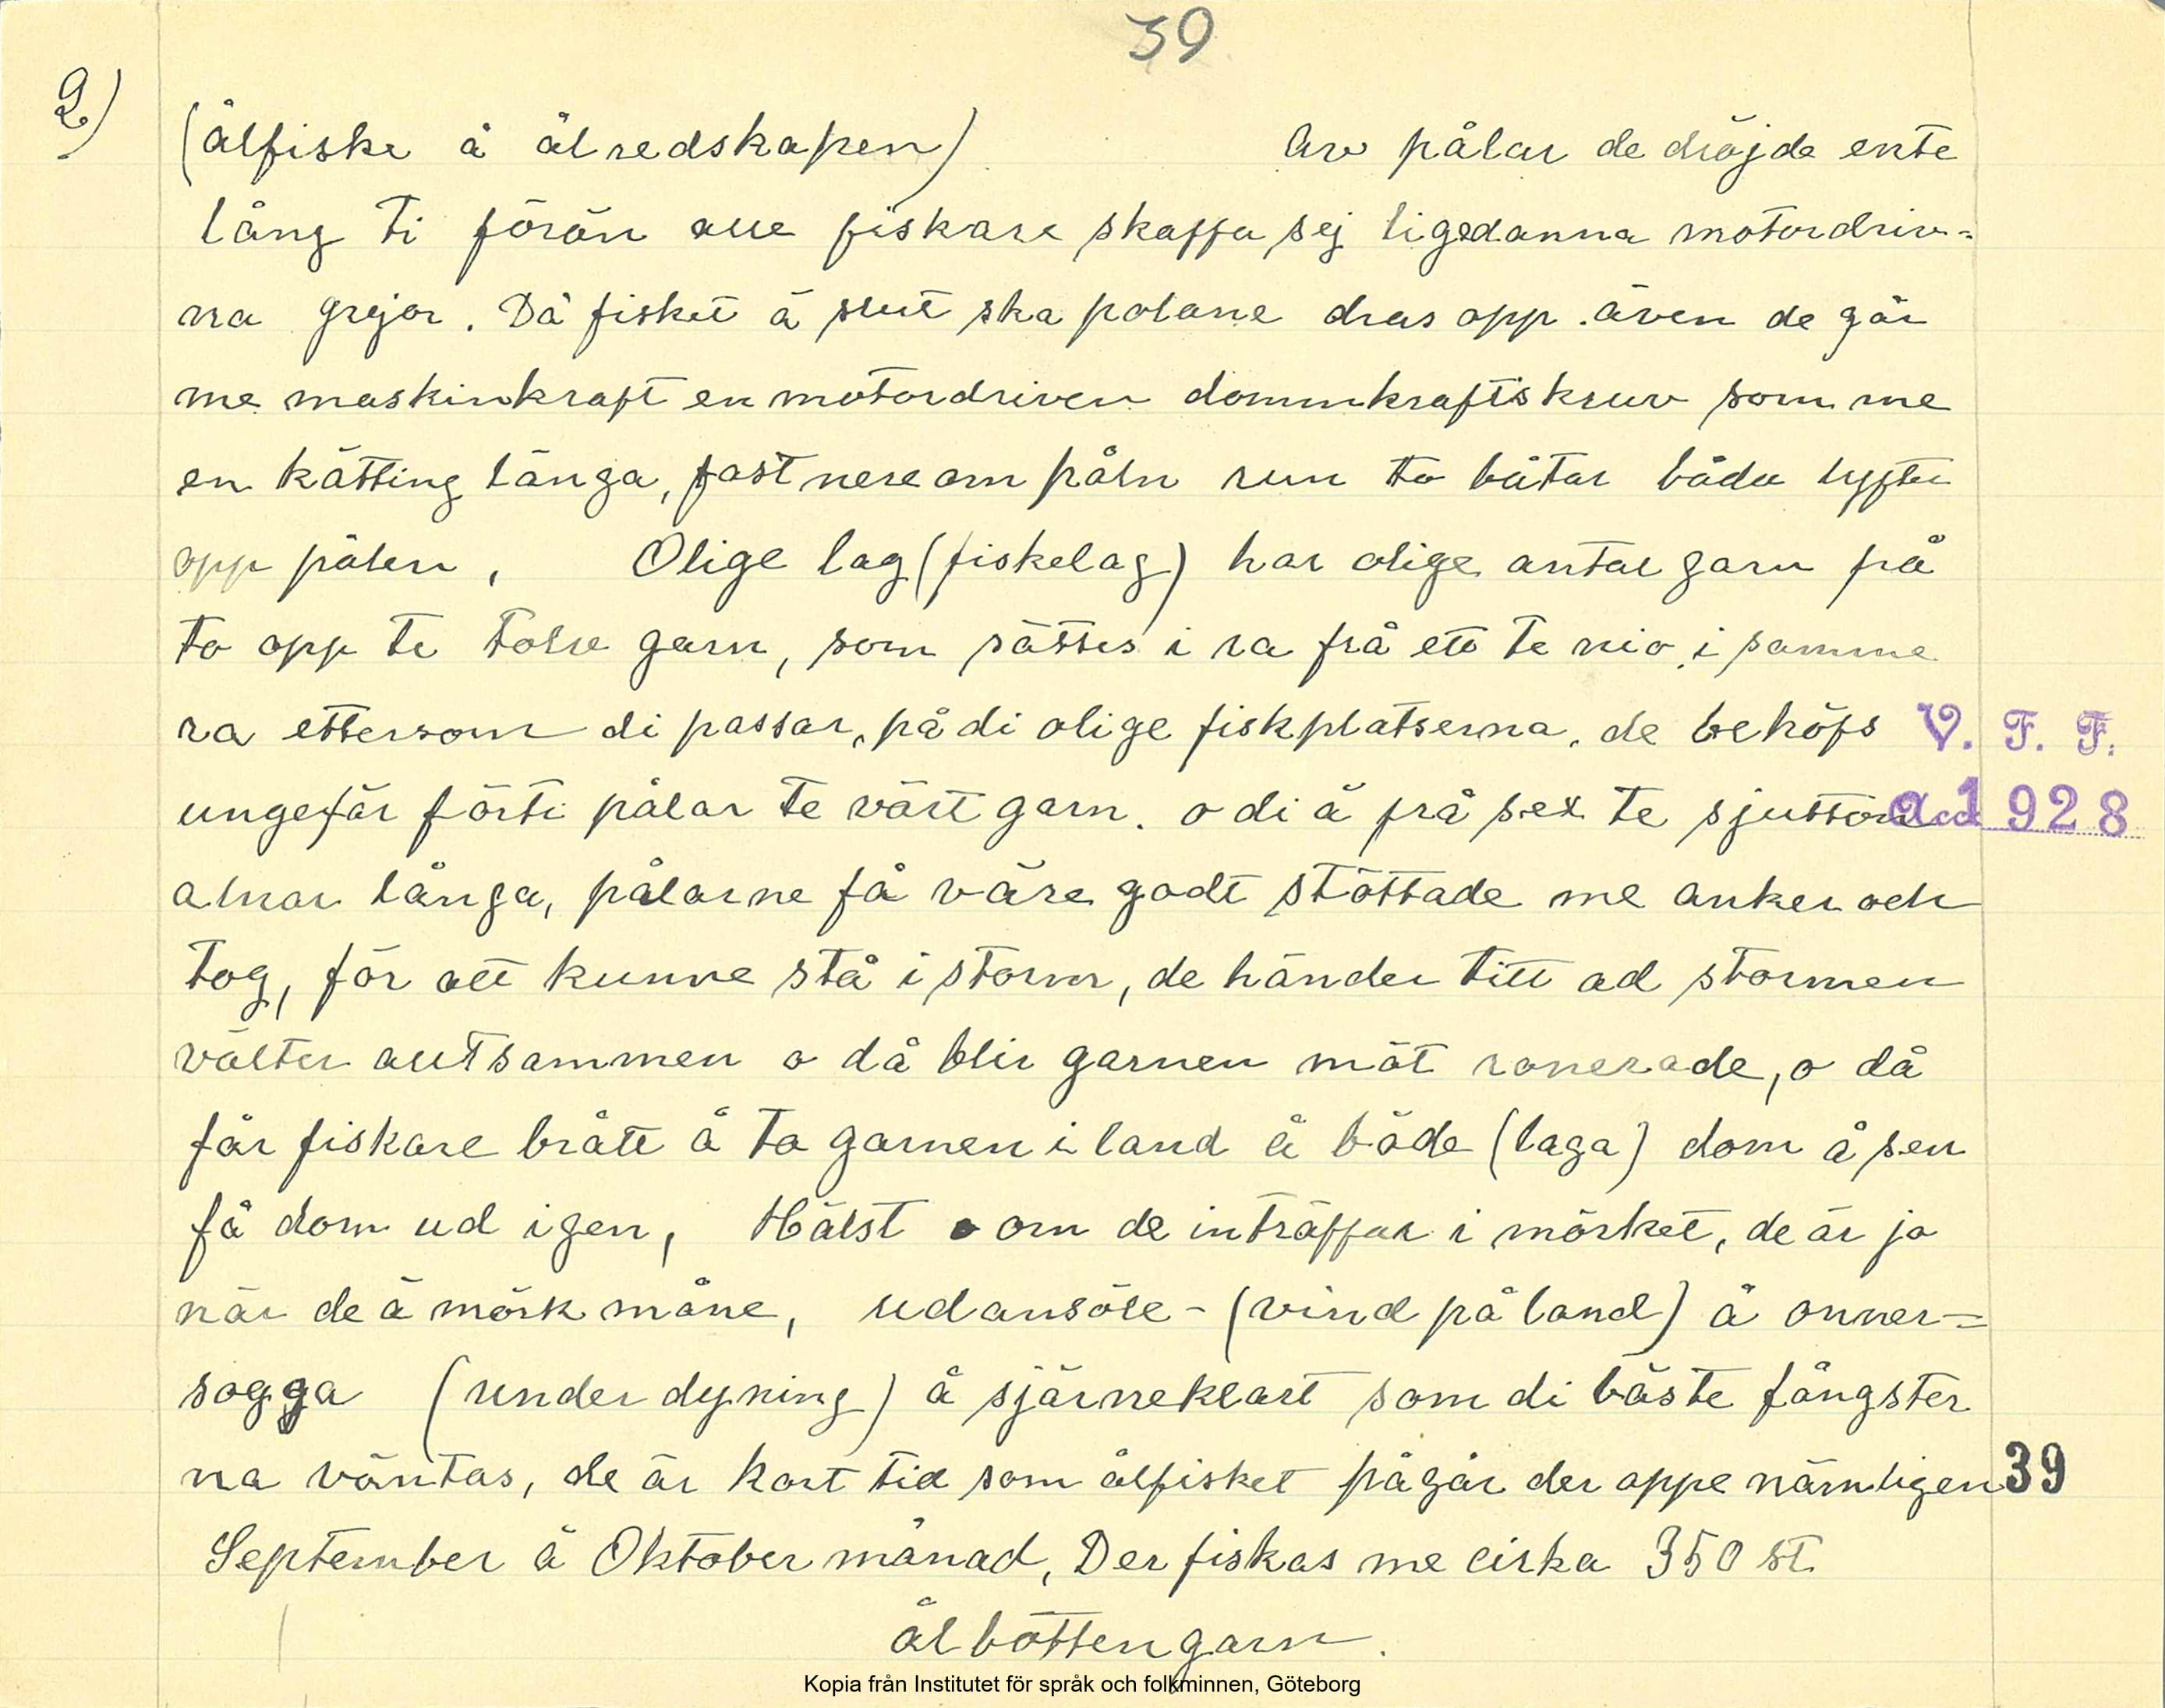 39
2)
(ålfiske å ålredskapen) Av pålar de dröjde ente
lång ti förän alle fiskare skaffa sej ligedanna motordriv=
na grejor. Då fisket ä slut ska polane dras opp. även de går
me maskinkraft en motordriven dommkraftskruv som me
en kätting länga, fast nere om påln run to båtar båda lyfter
opp pålen, Olige lag (fiskelag) har olige antal garn frå
to opp te tolve garn, som sättes i ra frå ett te nio i samme
ra ettersom di passar, på di olige fiskplatserna, de behöfs
V. F. F.
ungefär förti pålar te värt garn. o di ä frå sex te sjutton
Acc 1928
alnar långa, pålarne få väre godt stöttade me anker och
tog, för att kunne stå i storm, de händer titt ad stormen
välter altsammen o då blir garnen möt ronerade, o då
får fiskare brått å ta garnen i land å böde (laga) dom å sen
få dom ud igen, Hälst om de inträffar i mörket, de är jo
när de ä mörk måne, udansöle - (vind på land) å onner=
sogga (under dyning) å sjärneklart som di bäste fångster
na väntas, de är kort tid som ålfisket pågår der oppe nämligen
39
September å Oktober månad, Der fiskas me cirka 350 st.
ål bottengarn.
Kopia från Institutet för språk och folkminnen, Göteborg